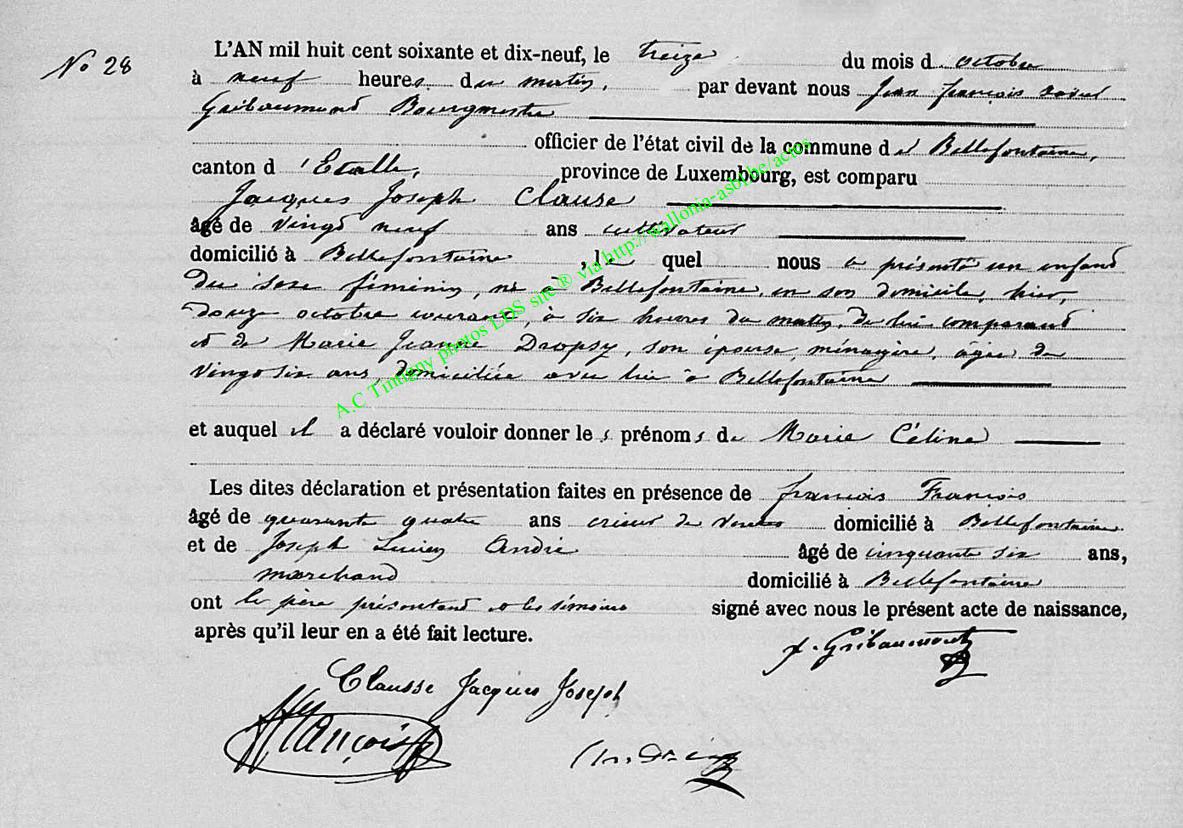 No 28
L'AN mil huit cent soixante et dix-neuf, le treize du mois d octobre
à neuf heures du matin, par devant nous Jean françois
Gribaumont Bourgmestre
officier de l'état civil de la commune de Bellefontaine,
canton d 'Etalle, province de Luxembourg, est comparu
Jacques Joseph Clausse
âgé de vingt neuf ans cultivateur
domicilié à Bellefontaine, le quel nous a présenté un enfant
du sexe féminin, né à Bellefontaine, en son domicile, hier,
douze octobre courant, à six heures du matin, de lui comparant
et de Marie Jeanne Dropsy, son épouse, ménagère, âgée de
vingt six ans, domiciliée avec lui à Bellefontaine
et auquel il a déclaré vouloir donner les prénoms de Marie Céline
Les dites déclaration et présentation faites en présence de françois François
âgé de quarante quatre ans crieur de ventes domicilié à Bellefontaine
et de Joseph Lucien André âgé de cinquante six ans,
marchand domicilié à Bellefontaine
ont le père présentant et les témoins signé avec nous le présent acte de naissance,
après qu'il leur en a été fait lecture.
Gribaumont
Clausse Jacques Joseph
François
André
A.C Tintigny photos LDS site® via http://wallonia-asbl.be/actes